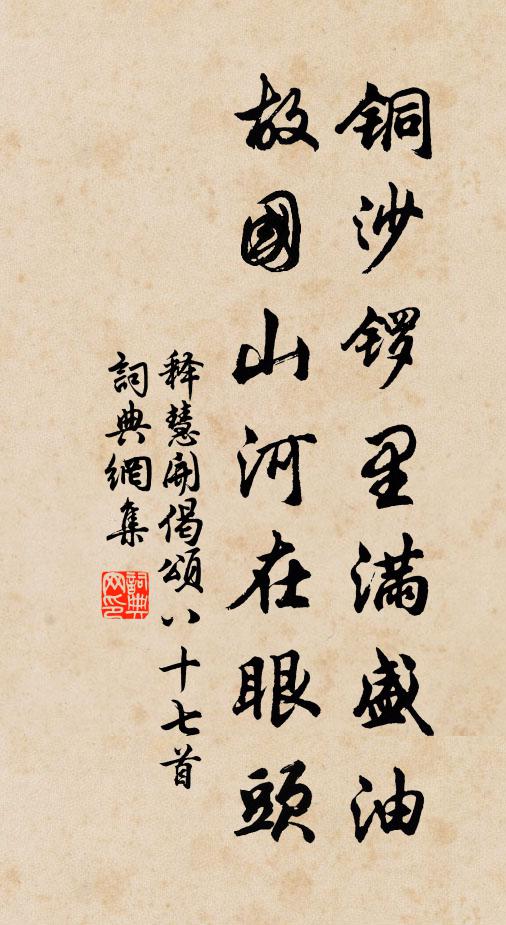 铜沙锣里满盛油
故國山河在眼頭
释慧開偈頌八十七首
詞典網集
詞典网印